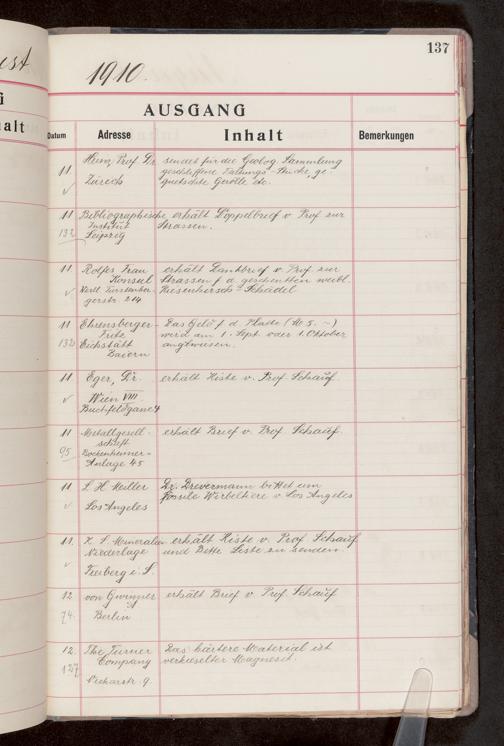 137
1910.
AUSGANG
Datum Adresse Inhalt Bemerkungen
11 Heim, Prof. Dr. sendet für die Geolog. Sammlung
geschliffene Faltungs-Stücke, ge-
Zürich quetschte Gerölle etc.
11 Bibliographische erhält Doppelbrief v Prof zur
132 Institut Strassen.
Leipzig
11 Rolfes Frau erhält Dankbrief v. Prof. zur
Konsul Strassen f. d. geschenkten weibl.
Riesenhirsch-Schädel
gerstr. 214
11 Ehrensberger Das Geld f. d. Platte (M 5. -)
132 Fritz wird am 1. Sept. oder 1. Oktober
Eichstätt angewiesen.
Baiern
11 Eger, Dr. erhält Kiste v. Prof. Schauf.
Wien VIII
Buchfeldgasse
11 Metallgesell- erhält Brief v. Prof. Schauf.
95 schaft
Bockenheimer-
Anlage 45
11 L. H. Miller Dr. Drevermann bittet um
fossile Wirbeltiere v. Los Angeles
Los Angeles
11. K. S. Mineralien erhält Kiste v. Prof Schauf
Niederlage und bitte Liste zu senden.
Freiberg i. S.
12 von Gwinner erhält Brief v. Prof. Schauf
74. Berlin
12. The Turner Das härtere Material ist
127 Company verkieselter Magnesit.
Neckarstr. 9.